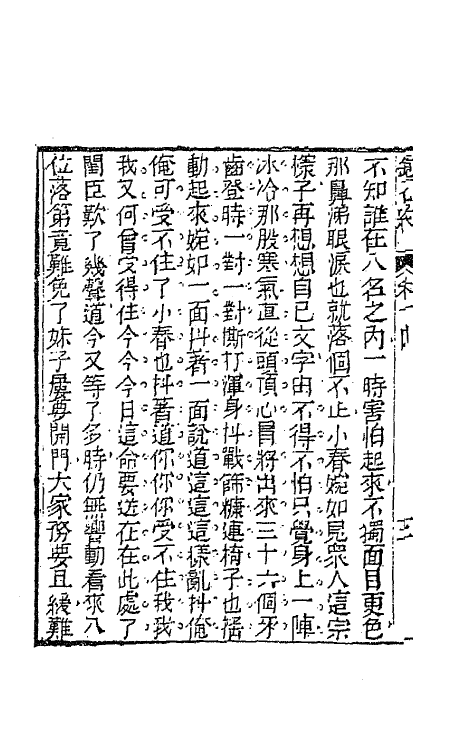 不知誰在八名之內一時害怕起來不獨面目更色
那鼻涕眼淚也就落個不止小春婉如見眾人這宗
樣子再想想自己文字由不得不怕只覺身上一陣
冰冷那股寒氣直從頭頂心冒將出來三十六個牙
齒登時一對一對撕打渾身抖戰篩糠連椅子也搖
動起來婉如一面抖著一面說道這這這這樣亂抖俺
俺可受不住了小春也抖著道你你你受不住我我
我又何曾受得住今今今日這命要送在在此處了
閨臣歎了幾聲道今又等了多時仍無響動看來八
位落第竟難免了妹子屢要開門大家務要且緩難